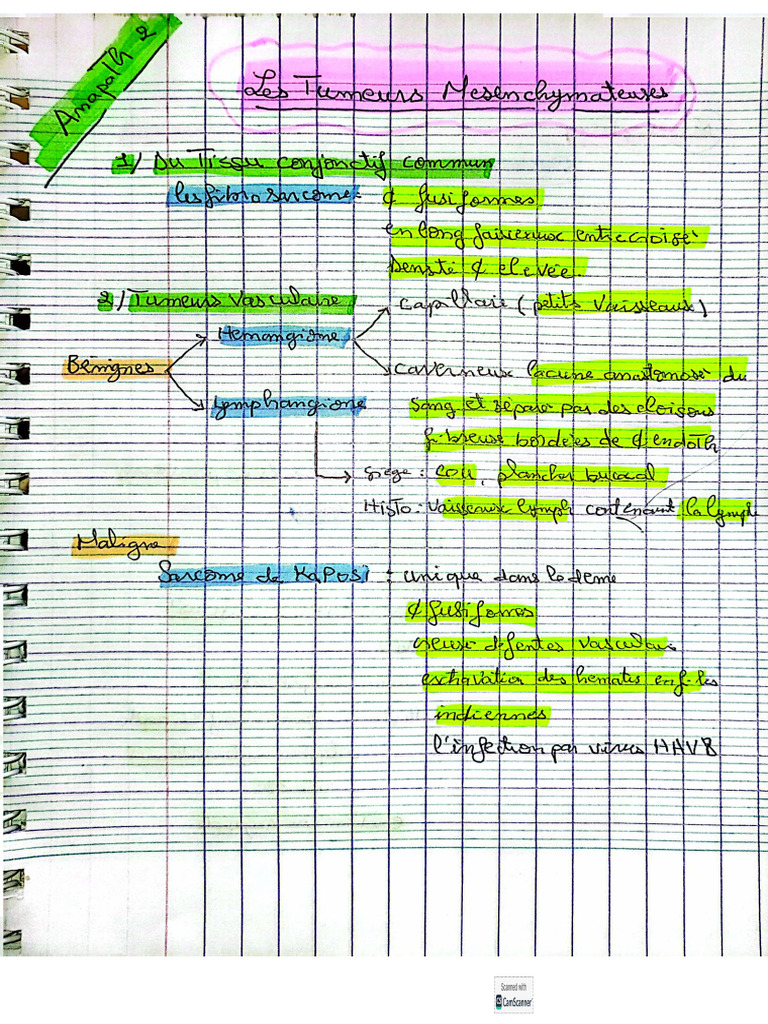 Anapath 2
Les Tumeurs Mesenchymateuses
1/ Du Tissu conjonctif commun
les fibrosarcome: ¢ fusiformes
en long faisceaux entrecroisé
Densité ¢ elevée
2/ Tumeurs vasculaire
capillaire (petits vaisseaux)
Hemangiome
Bénignes
caverneux lacune anastomosé du
Lymphangiome
sang et séparé par des cloisons
fibreuse bordées de ¢ endoth
siège : cou, plancher buccal
Histo : vaisseaux lymph contenant la lymph
Maligne
Sarcome de KaPosi : unique dans le derme
¢ fusifomes
fentes vasculair
des hematis en f. les
indiennes
l'infection par virus HAV8
Scanned with
CamScanner